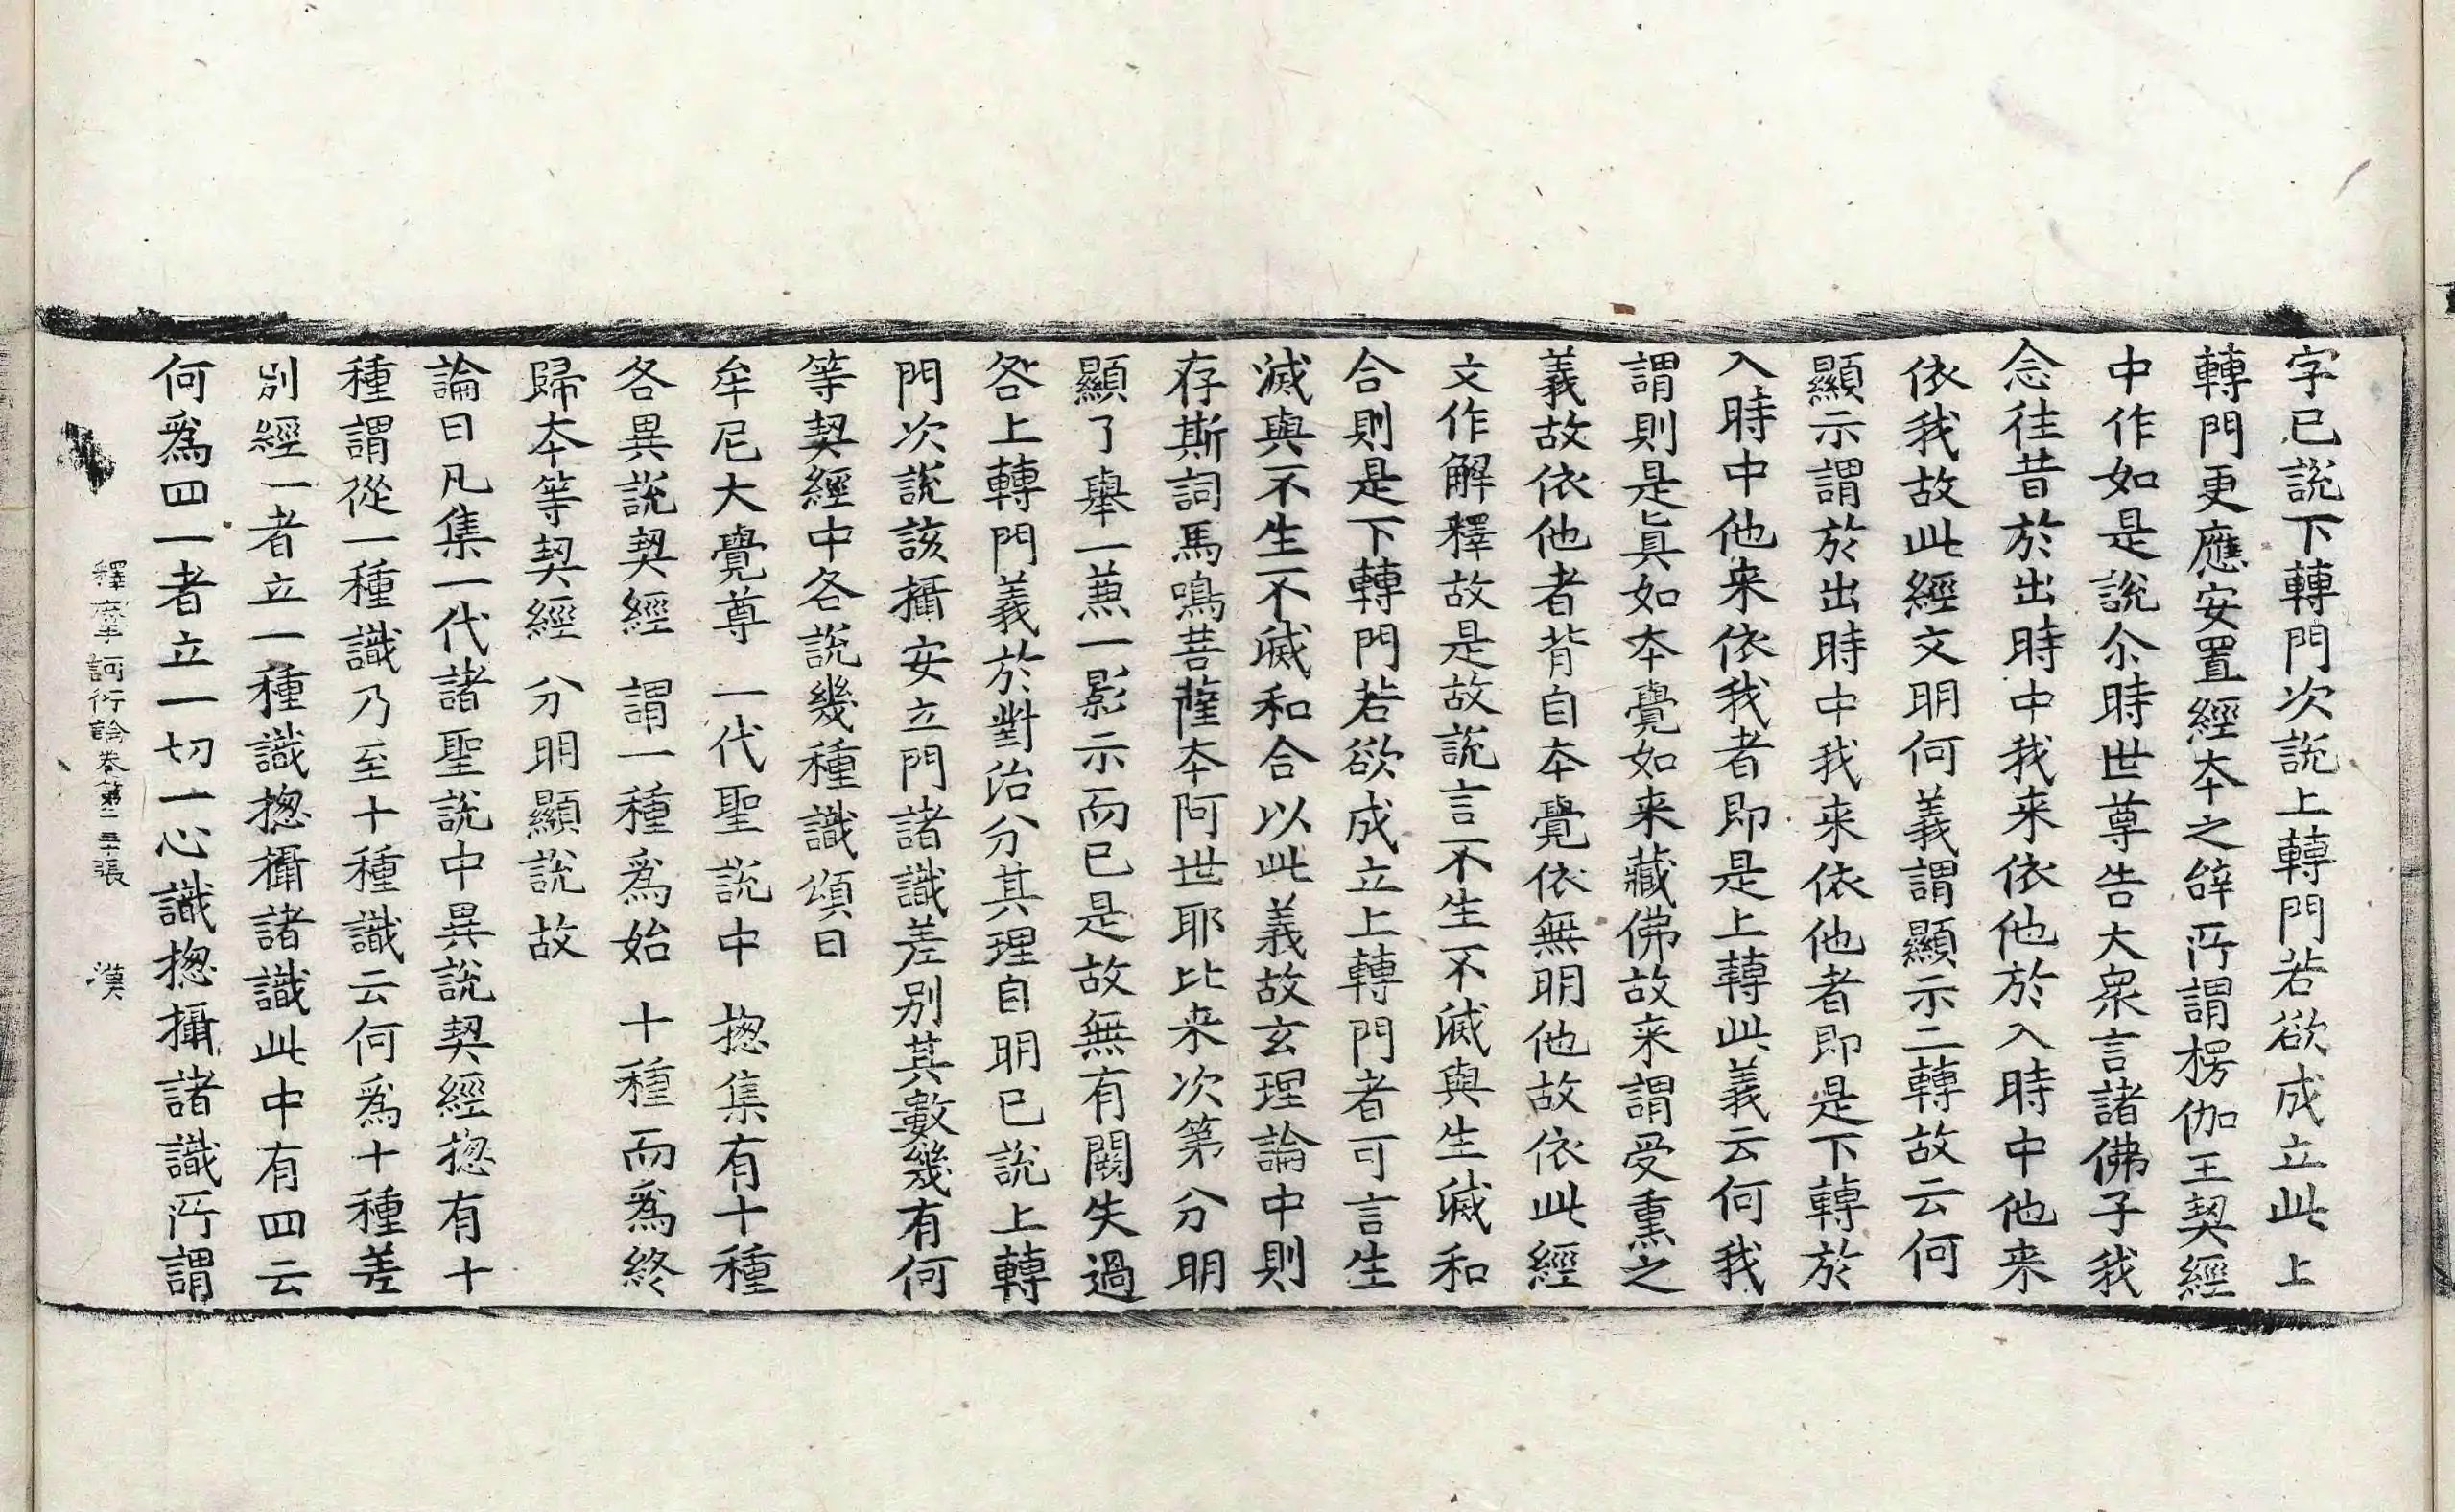 字已說下轉門次說上轉門若欲成立此上
轉門更應安置經本之辝所謂楞伽王契經
中作如是說尒時世尊告大衆言諸佛子我
念往昔於出時中我来依他於入時中他来
依我故此經文明何義謂顯示二轉故云何
顯示謂於出時中我来依他者即是下轉於
入時中他来依我者即是上轉此義云何我
謂則是眞如本覺如来藏佛故来謂受熏之
義故依他者背自本覺依無明他故依此經
文作解釋故是故說言不生不滅與生滅和
合則是下轉門若欲成立上轉門者可言生
滅與不生不滅和合以此義故玄理論中則
存斯詞馬鳴菩薩本阿世耶比来次第分明
顯了舉一兼一影示而已是故無有闕失過
咎上轉門義於對治分其理自明已說上轉
門次說該攝安立門諸識差别其數幾有何
等契經中各說幾種識頌曰
牟尼大覺尊 一代聖說中 揔集有十種
各異說契經 謂一種爲始 十種而爲終
歸本等契經 分明顯說故
論曰凡集一代諸聖說中異說契經揔有十
種謂從一種識乃至十種識云何爲十種差
别經一者立一種識揔攝諸識此中有四云
何爲四一者立一切一心識揔攝諸識所謂
釋摩訶衍論卷第二 三張 漢